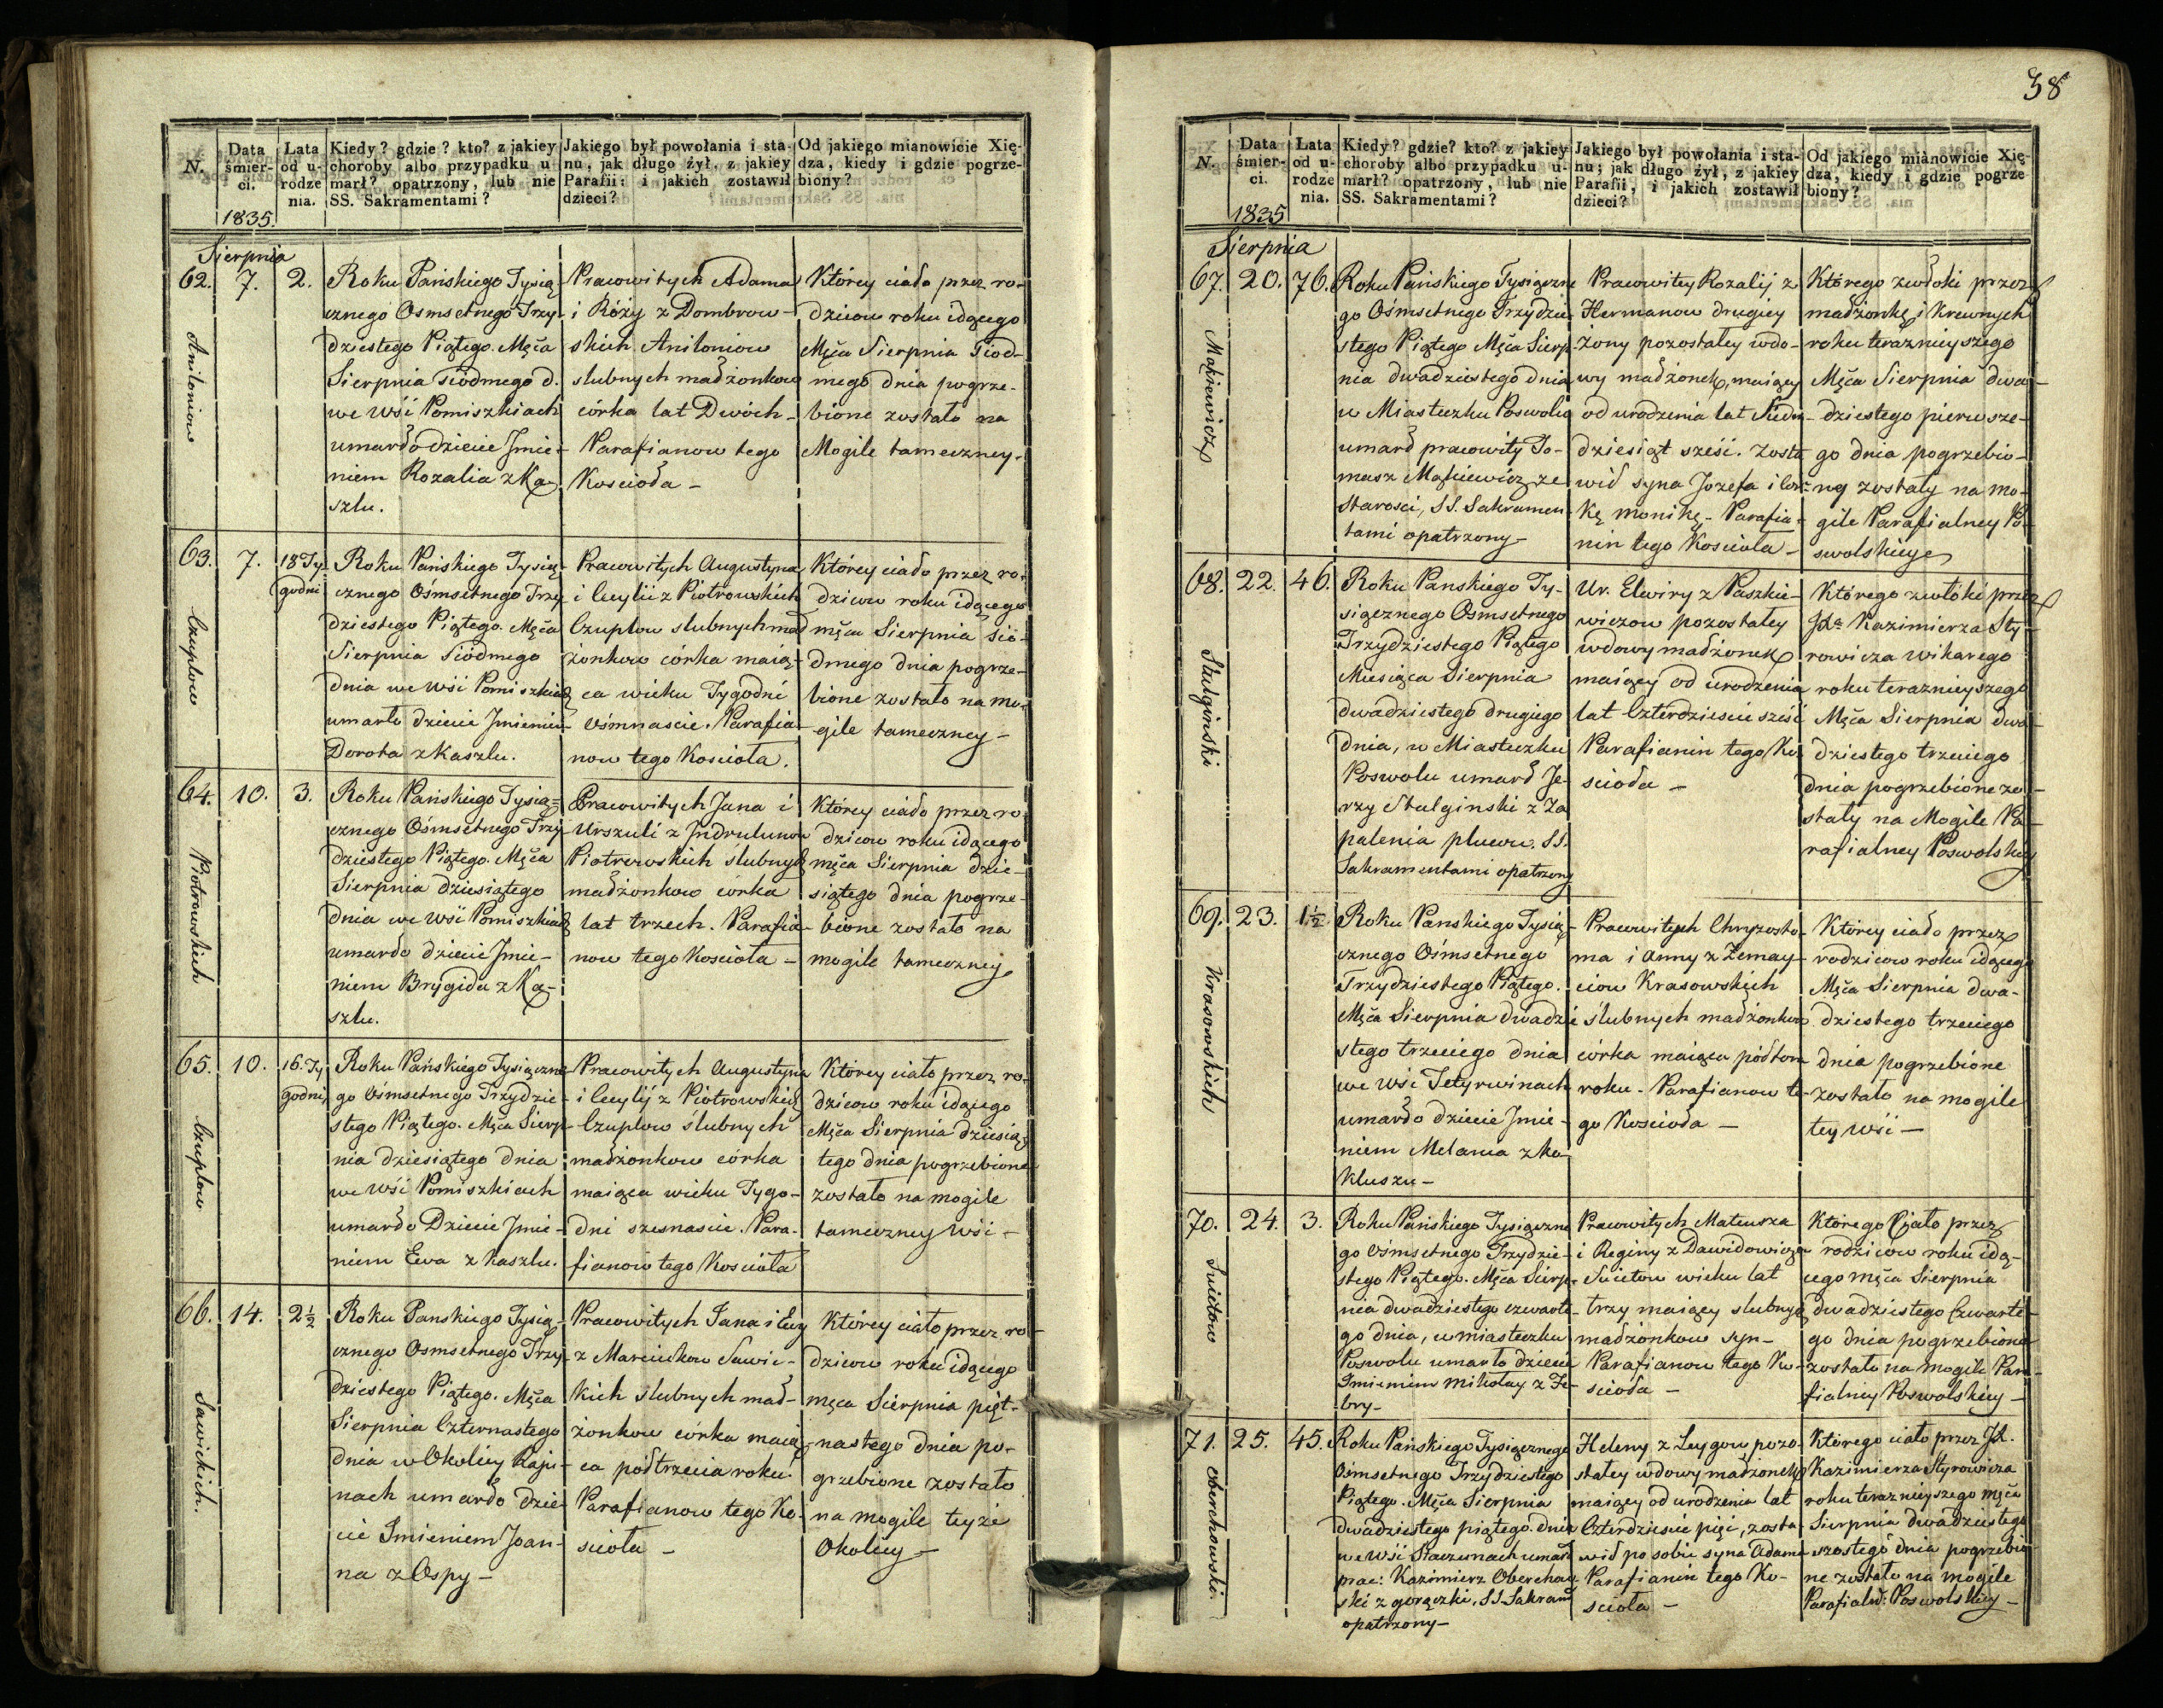 38
N.
Data śmier- ci.
1835.
Lata od u- rodze nia.
Kiedy? gdzie? kto? z jakiey
choroby albo przypadku u-
marł? opatrzony, lub nie
SS. Sakramentami?
Jakiego był powołania i sta-
nu, jak długo żył, z jakiey
Parafii: i jakich zostawił
dzieci?
Od jakiego mianowicie Xię-
dza, kiedy i gdzie pogrze-
biony?
Sierpnia
62. 7. 2.
Anilionow
Roku Pańskiego Tysią
cznego Osmsetnego Trzy-
dziestego Piątego. Męca
Sierpnia siódmego d.
we Wśi Pomiszkiach
umarło dziecie Jmie-
niem Rozalia z Ka-
szlu.
Pracowitych Adama
i Róży z Dombrow-
skich Anilioniow
slubnych małżonkow
córka lat Dwóch-
Parafianow tego
Koscioła -
Którey ciało przez ro-
dzicow roku idącego
Męca Sierpnia Siod-
mego dnia pogrze-
bione zostało na
Mogile tameczney.
63. 7. 18 Ty-
godni
Czuplow
Roku Pańskiego Tysią-
cznego Ośmsetnego Trzy
dziestego Piątego. Męca
Sierpnia siódmego
dnia we Wśi Pomiszkiach
umarło dziecie Jmieniem
Dorota z Kaszlu.
Pracowitych Augustyna
i Cecylii z Piotrowskich
Czuplow slubnych mał
żonkow córka maią-
ca wieku Tygodni
ośmnascie. Parafia-
now tego Kosciola.
Którey ciało przez ro-
dzicow roku idącego
męca Sierpnia sió-
dmego dnia pogrze-
bione zostało na mo-
gile tameczney -
64. 10. 3.
Piotrowskich
Roku Pańskiego Tysią-
cznego Ośmsetnego Trzy
dziestego Piątego. Męca
Sierpnia dziesiątego
dnia we Wśi Pomiszkiach
umarło dziecie Jmie-
niem Brygida z Ka-
szlu.
Pracowitych Jana i
Urszuli z Indrulunow
Piotrowskich slubnych
małżonkow córka
lat trzech. Parafia-
now tego Kosciola -
Którey ciało przez ro
dzicow roku idącego
męca Sierpnia dzie-
siątego dnia pogrze-
bione zostało na
mogile tameczney
65. 10. 16. Ty
godni
Czuplow
Roku Pańskiego Tysiączne
go Ośmsetnego Trzydzie-
stego Piątego. Męca Sierp-
nia dziesiątego dnia
we Wśi Pomiszkiach
umarło Dziecie Jmie-
niem Ewa z kaszlu.
Pracowitych Augustyna
i Cecylij z Piotrowskich
Czuplow slubnych
małżonkow córka
maiąca wieku Tygo-
dni szesnascie. Para-
fianow tego Kosciola
Którey ciało przez ro-
dzicow roku idącego
Męca Sierpnia dziesią
tego dnia pogrzebione
zostało na mogile
tameczney Wśi -
66. 14. 2½
Sawickich.
Roku Panskiego Tysią-
cznego Osmsetnego Trzy-
dziestego Piątego. Męca
Sierpnia Czternastego
dnia w Okolicy Raju-
nach umarło dzie-
cie Jmieniem Joan-
na z Ospy -
Pracowitych Jana i Ewy
z Marciukow Sawic-
kich slubnych mał-
żonkow córka maią-
ca półtrzecia roku.
Parafianow tego Ko-
sciola -
Którey ciało przez ro-
dzicow roku idącego
męca Sierpnia pięt-
nastego dnia po-
grzebione zostało
na mogile teyże
Okolicy -
N.
Data śmier- ci.
1835
Lata od u- rodze nia.
Kiedy? gdzie? kto? z jakiey
choroby albo przypadku u-
marł? opatrzony, lub nie
SS. Sakramentami?
Jakiego był powołania i sta-
nu; jak długo żył, z jakiey
Parafii, i jakich zostawił
dzieci?
Od jakiego mianowicie Xię-
dza, kiedy i gdzie pogrze
biony?
Sierpnia
67. 20. 76.
Mackiewicz
Roku Pańskiego Tysiączne
go Ośmsetnego Trzydzie-
stego Piątego Męca Sierp-
nia dwadziestego dnia
w Miasteczku Poswolu
umarł pracowity To-
masz Mackiewicz ze
Starosci, SS. Sakramen-
tami opatrzony -
Pracowitey Rozalij z
Hermanow drugiey
żony pozostałey wdo-
wy małżonek, maiący
od urodzenia lat Siedm-
dziesiąt sześć. Zosta
wił syna Jozefa i Cór-
kę monikę - Parafia-
nin tego Kosciola -
Którego zwłoki przez
małżonkę i krewnych
roku teraznieyszego
Męca Sierpnia dwa-
dziestego pierwsze-
go dnia pogrzebio-
ny zostały na mo-
gile Parafialney Po-
swolskiey
68. 22. 46.
Stulginski
Roku Panskiego Ty-
siącznego Osmsetnego
Trzydziestego Piątego
Miesiąca Sierpnia
dwadziestego drugiego
dnia, w Miasteczku
Poswolu umarł Je-
rzy Stulginski z Za
palenia plucow. SS.
Sakramentami opatrzony
Ur. Elwiry z Paszkie-
wiczow pozostałey
wdowy małżonek
maiący od urodzenia
lat Czterdziescie sześć
Parafianin tego Ko-
scioła -
Którego zwłoki przez
JXa Kazimierza Sty-
rowicza wikarego
roku teraznieyszego
Męca Sierpnia dwa-
dziestego trzeciego
dnia pogrzebione zo-
stały na Mogile Pa-
rafialney Poswolskiey
69. 23. 1½
Krasowskich
Roku Panskiego Tysią-
cznego Ośmsetnego
Trzydziestego Piątego.
Męca Sierpnia dwadzie
stego trzeciego dnia
we Wśi Tetyrwinach
umarło dziecie Jmie-
niem Melania z ko-
kluszu -
Pracowitych Chryzosto-
ma i Anny z Zemay-
ciow Krasowskich
slubnych małżonkow
córka maiąca półtora
roku - Parafianow te-
go Kosciola -
Którey ciało przez
rodzicow roku idącego
Męca Sierpnia dwa-
dziestego trzeciego
dnia pogrzebione
zostało na mogile
tey wśi -
70. 24. 3.
Suictow
Roku Pańskiego Tysiączne
go Ośmsetnego Trzydzie-
stego Piątego. Męca Sierp-
nia dwadziestego czwarte-
go dnia, w miasteczku
Poswolu umarło dziecie
Jmieniem Mikołay z Fe-
bry -
Pracowitych Mateusza
i Reginy z Dawidowiczow
Suictow wieku lat
trzy maiący slubnych
małżonkow syn -
Parafianow tego Ko-
scioła -
Którego Ciało przez
rodzicow roku idą-
cego męca Sierpnia
dwadziestego Czwarte-
go dnia pogrzebione
zostało na mogile Para-
fialney Poswolskiey -
71. 25. 45.
Oberchowski.
Roku Pańskiego Tysiącznego
Ośmsetnego Trzydziestego
Piątego. Męca Sierpnia
dwadziestego piątego dnia
we Wśi Staczunach umarł
prac: Kazimierz Oberchow
ski z gorączki, SS. Sakram
opatrzony -
Heleny z Leygow pozo
stałey wdowy małżonek
maiący od urodzenia lat
Czterdziescie pięć, zosta-
wił po sobie syna Adama
Parafianin tego Ko-
sciola -
Którego ciało przez JX.
Kazimierza Styrowicza
roku teraznieyszego męca
Sierpnia dwadziestego
szostego dnia pogrzebio
ne zostało na mogile
Parafialn: Poswolskiey -